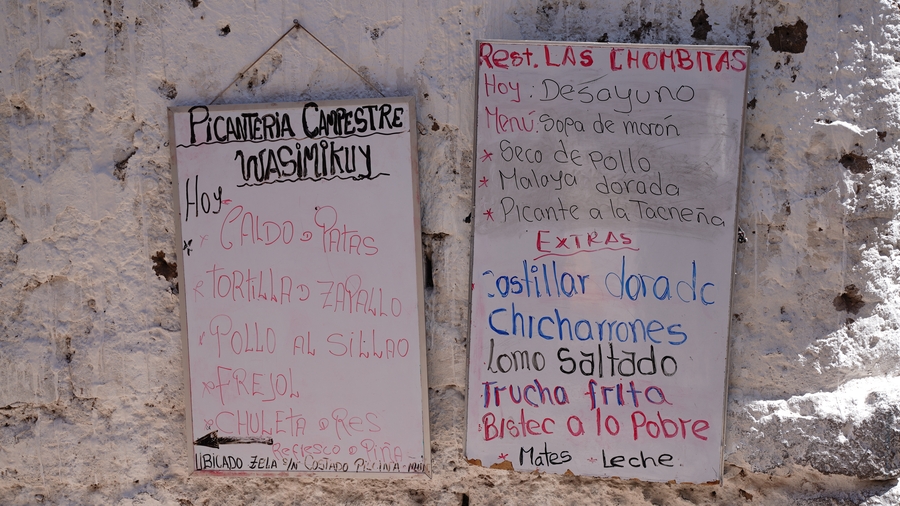 PICANTERIA CAMPESTRE
WASIMIKUY
Hoy
CALDO D PATAS
TORTILLA D ZAPALLO
POLLO AL SILLAO
FREJOL
CHULETA D RES
REFRESCO D PIÑA
UBICADO ZELA S/N COSTADO
Rest. LAS CHOMBITAS
Hoy: Desayuno
Menú: Sopa de morón
* Seco de pollo
* Malaya dorada
* Picante a la Tacneña
EXTRAS
Costillar dorado
Chicharrones
Lomo Saltado
Trucha frita
Bistec a lo Pobre
* Mates * Leche.